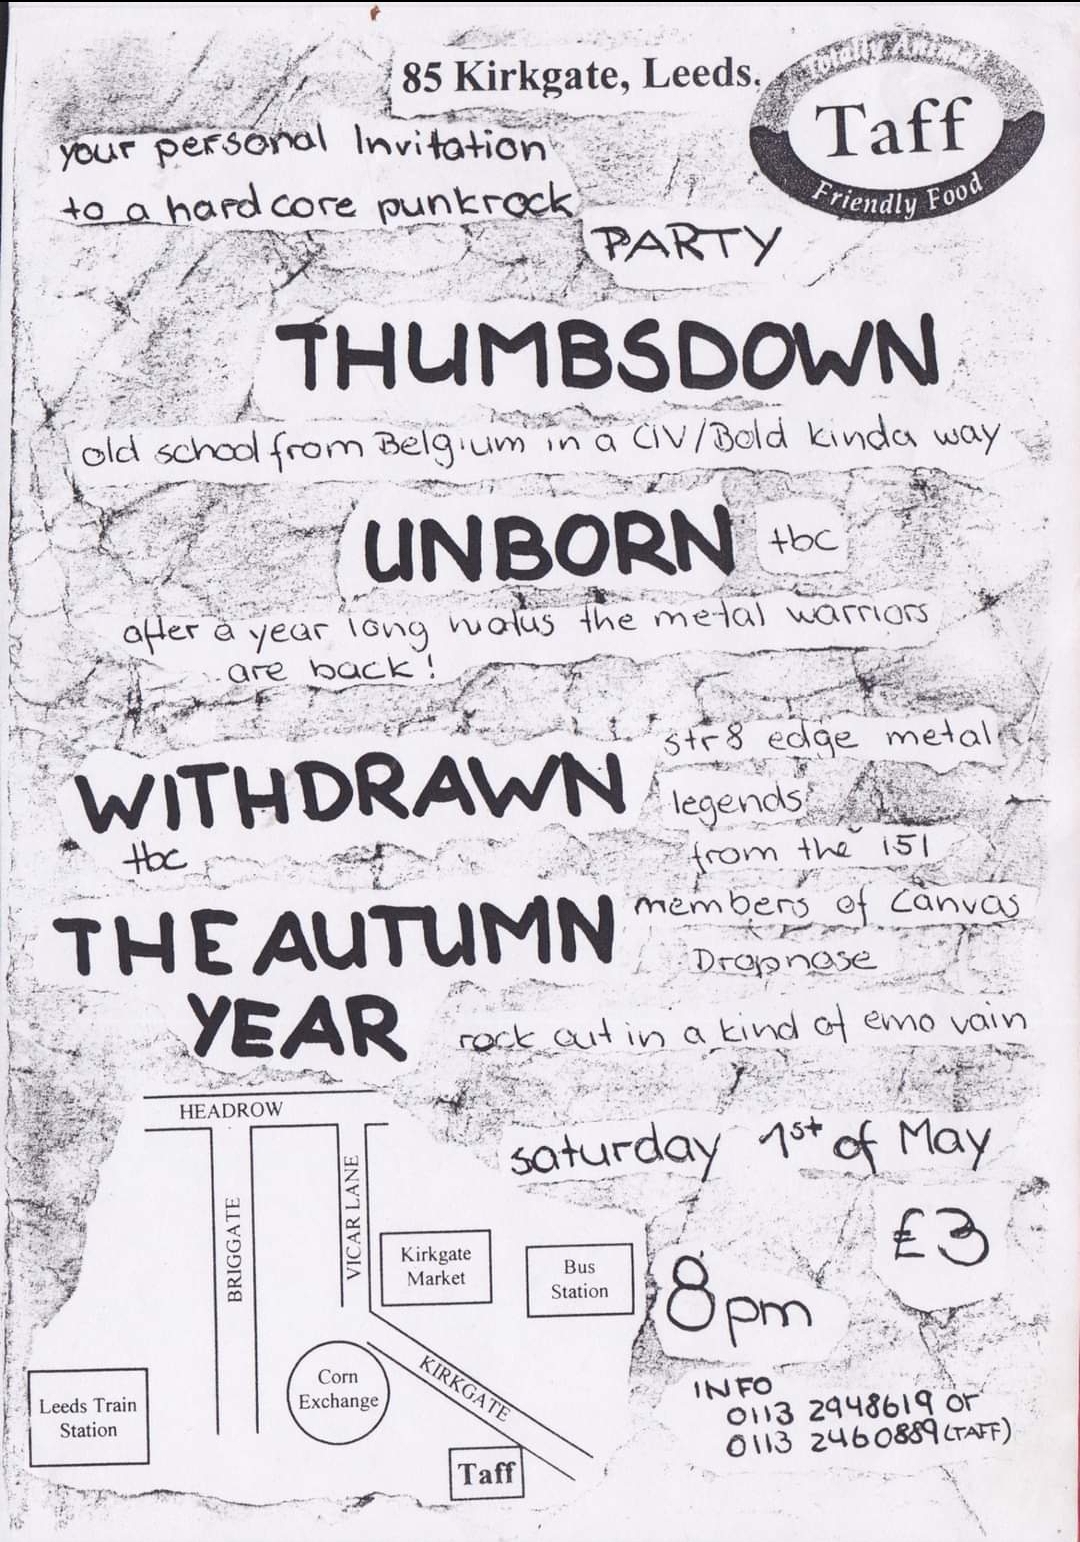 85 Kirkgate, Leeds.
Totally Animal
Taff
Friendly Food
your personal Invitation
to a hardcore punkrock
PARTY
THUMBSDOWN
old school from Belgium in a CIV/Bold kinda way
UNBORN tbc
after a year long hiatus the metal warriors
are back!
WITHDRAWN
tbc
str8 edge metal
legends
from the 151
THE AUTUMN
YEAR
members of Canvas
Dropnose
rock out in a kind of emo vain
saturday 1st of May
£3
8pm
INFO
0113 2948619 or
0113 2460889 (TAFF)
HEADROW
BRIGGATE
VICAR LANE
Kirkgate
Market
Bus
Station
Corn
Exchange
KIRKGATE
Leeds Train
Station
Taff